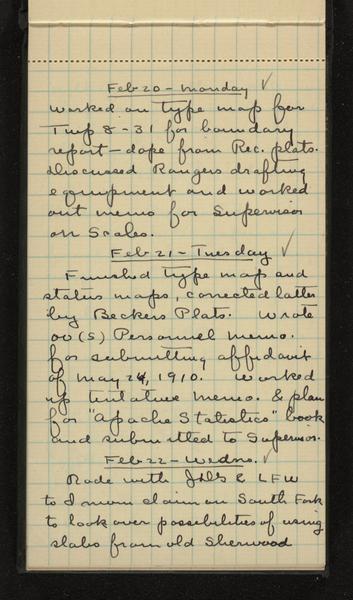 Feb 20 - Monday ✓
Worked on type map for
Twp 8-31 for boundary
report - dope from Rec. plats.
Discussed Rangers drafting
equipment and worked
out memo for Supervisor
on Scales.
Feb 21 - Tuesday ✓
Finished type map and
status maps, corrected latter
by Beckers Plats. Wrote
oo (S) Personnel memo.
for submitting affidavit
of May 24, 1910. Worked
up tentative memo. & plan
for "Apache Statistics" book
and submitted to Supervisor.
Feb 22 - Wednes. ✓
Rode with & LFW
to claim on South Fork
to look over possibilities of using
slabs from old Sherwood